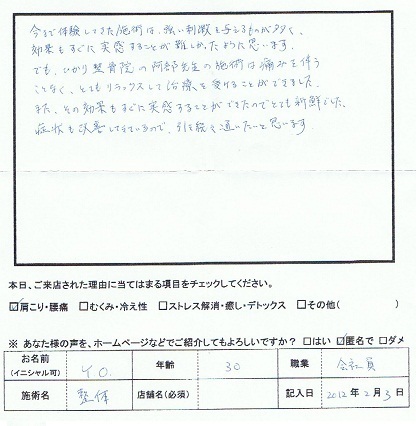 今まで体験してきた施術は、強い刺激を与えるものが多く、
効果もすぐに実感することが難しかったように思います。
でも、ひかり整骨院の阿部先生の施術は痛みを伴う
ことなく、とてもリラックスして治療を受けることができました。
また、その効果もすぐに実感することができたのでとても新鮮でした。
症状も改善してきているので、引き続き通いたいと思います。
本日、ご来店された理由に当てはまる項目をチェックしてください。
☑肩こり・腰痛 □むくみ・冷え性 □ストレス解消・癒し・デトックス □その他( )
※ あなた様の声を、ホームページなどでご紹介してもよろしいですか? □はい ☑匿名で □ダメ
お名前 (イニシャル可) Y.O. 年齢 30 職業 会社員
施術名 整体 店舗名(必須) 記入日 2012年 2月 3日